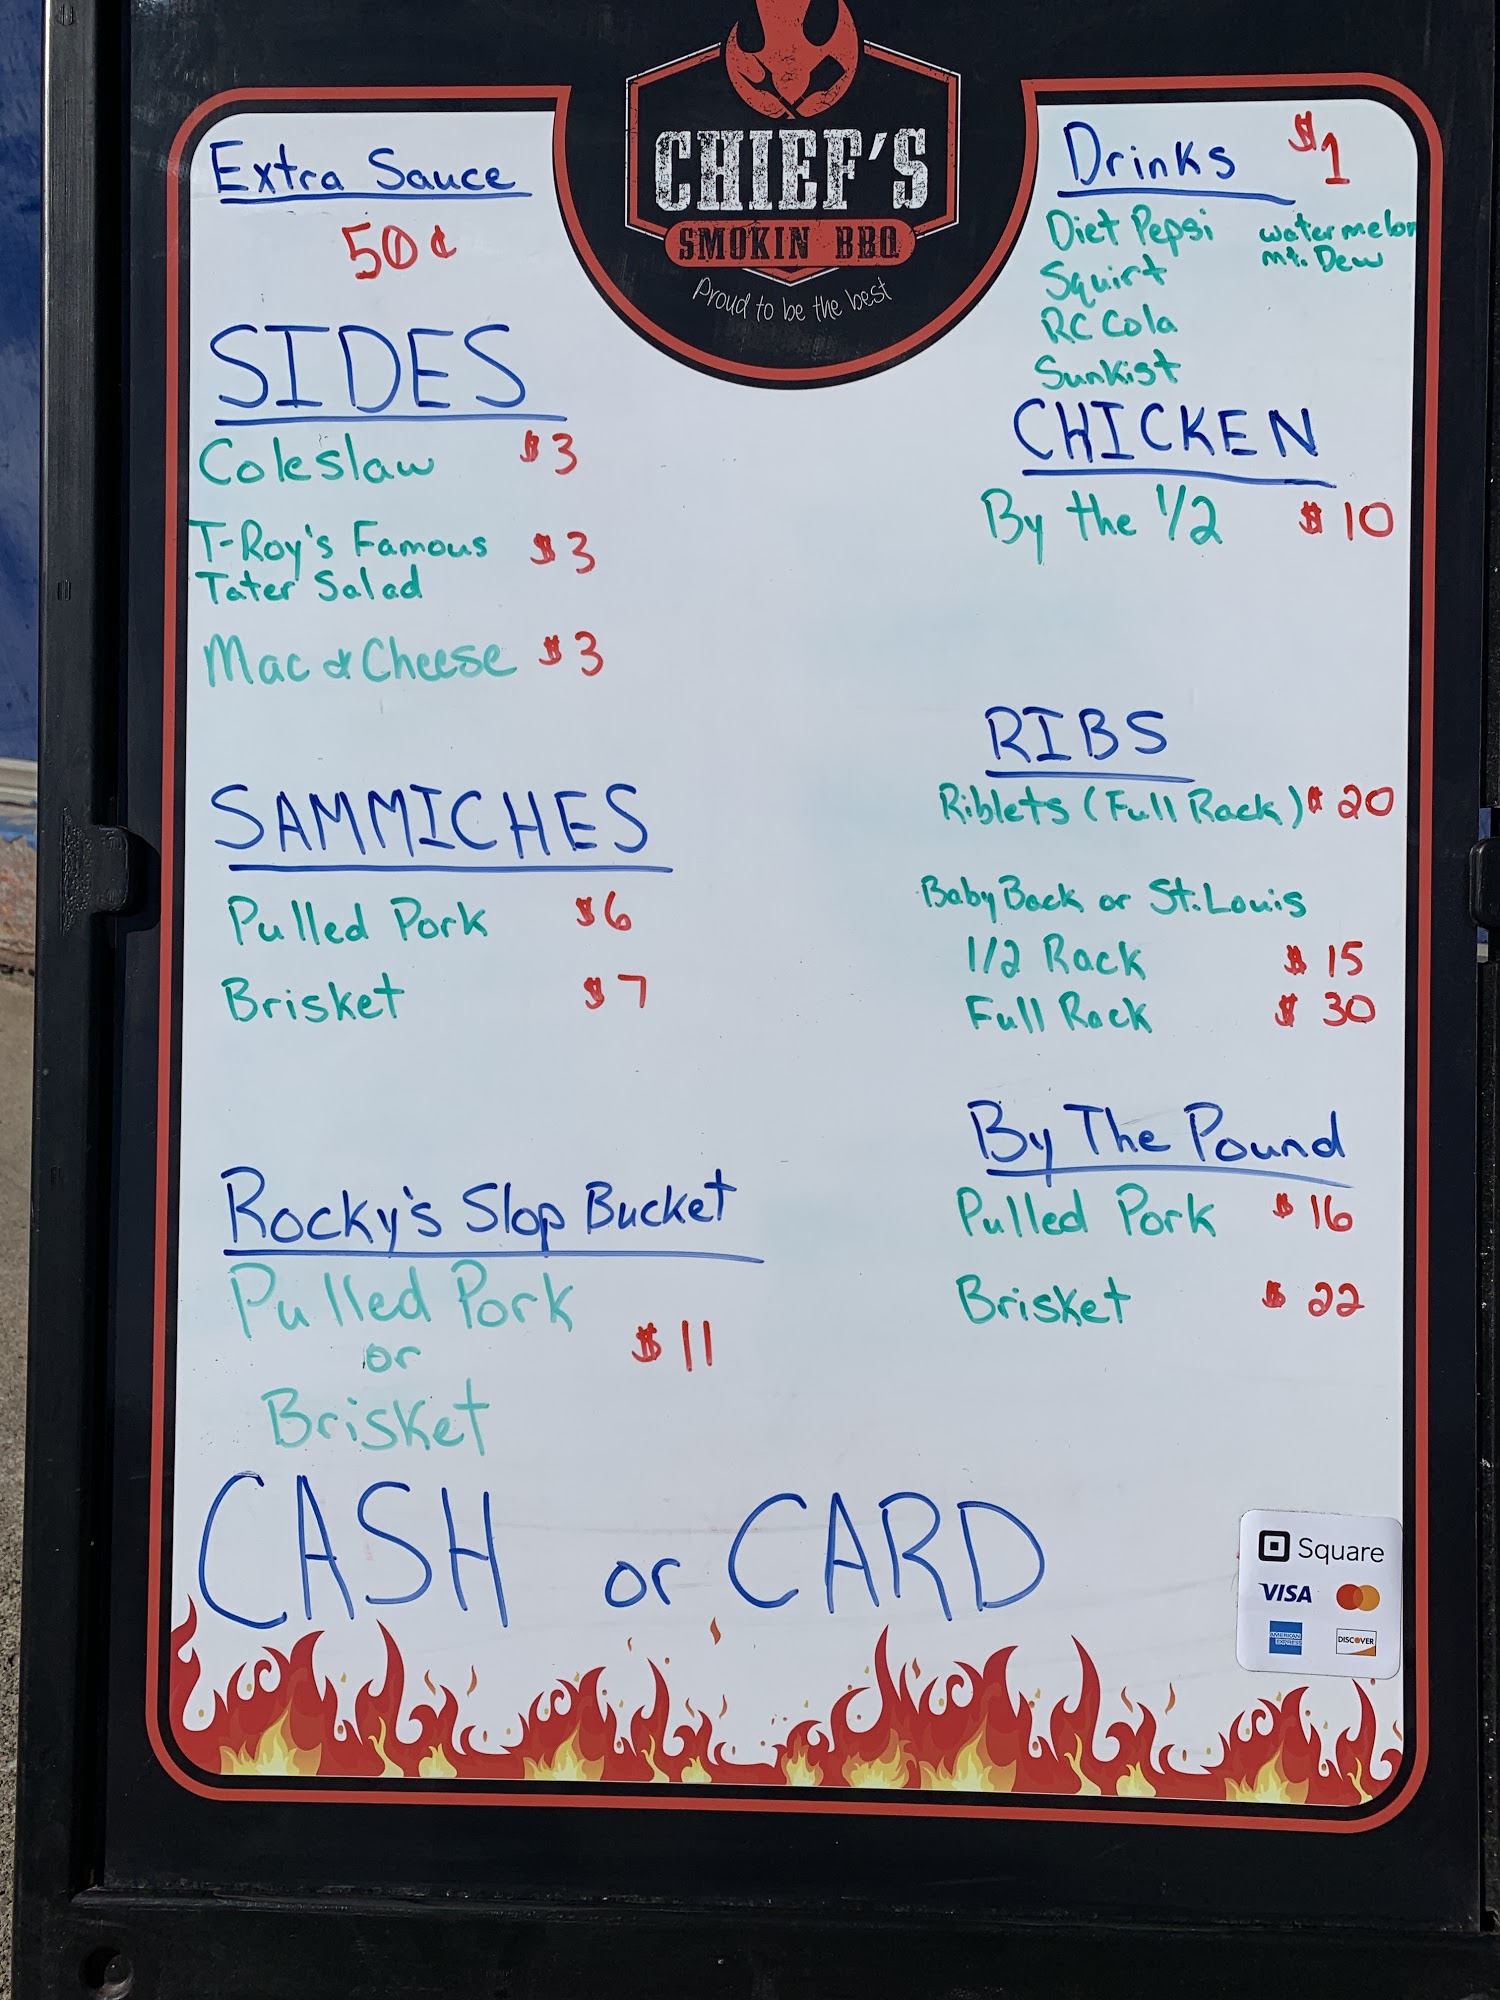 CHIEF'S
SMOKIN BBQ
Proud to be the best
Extra Sauce
50¢
SIDES
Coleslaw $3
T-Roy's Famous $3
Tater Salad
Mac & Cheese $3
SAMMICHES
Pulled Pork $6
Brisket $7
Rocky's Slop Bucket
Pulled Pork
or $11
Brisket
Drinks $1
Diet Pepsi watermelon
Squirt Mt. Dew
RC Cola
Sunkist
CHICKEN
By the 1/2 $10
RIBS
Riblets (Full Rack) $20
Baby Back or St. Louis
1/2 Rack $15
Full Rack $30
By The Pound
Pulled Pork $16
Brisket $22
CASH or CARD
Square
VISA
AMERICAN EXPRESS
DISCOVER